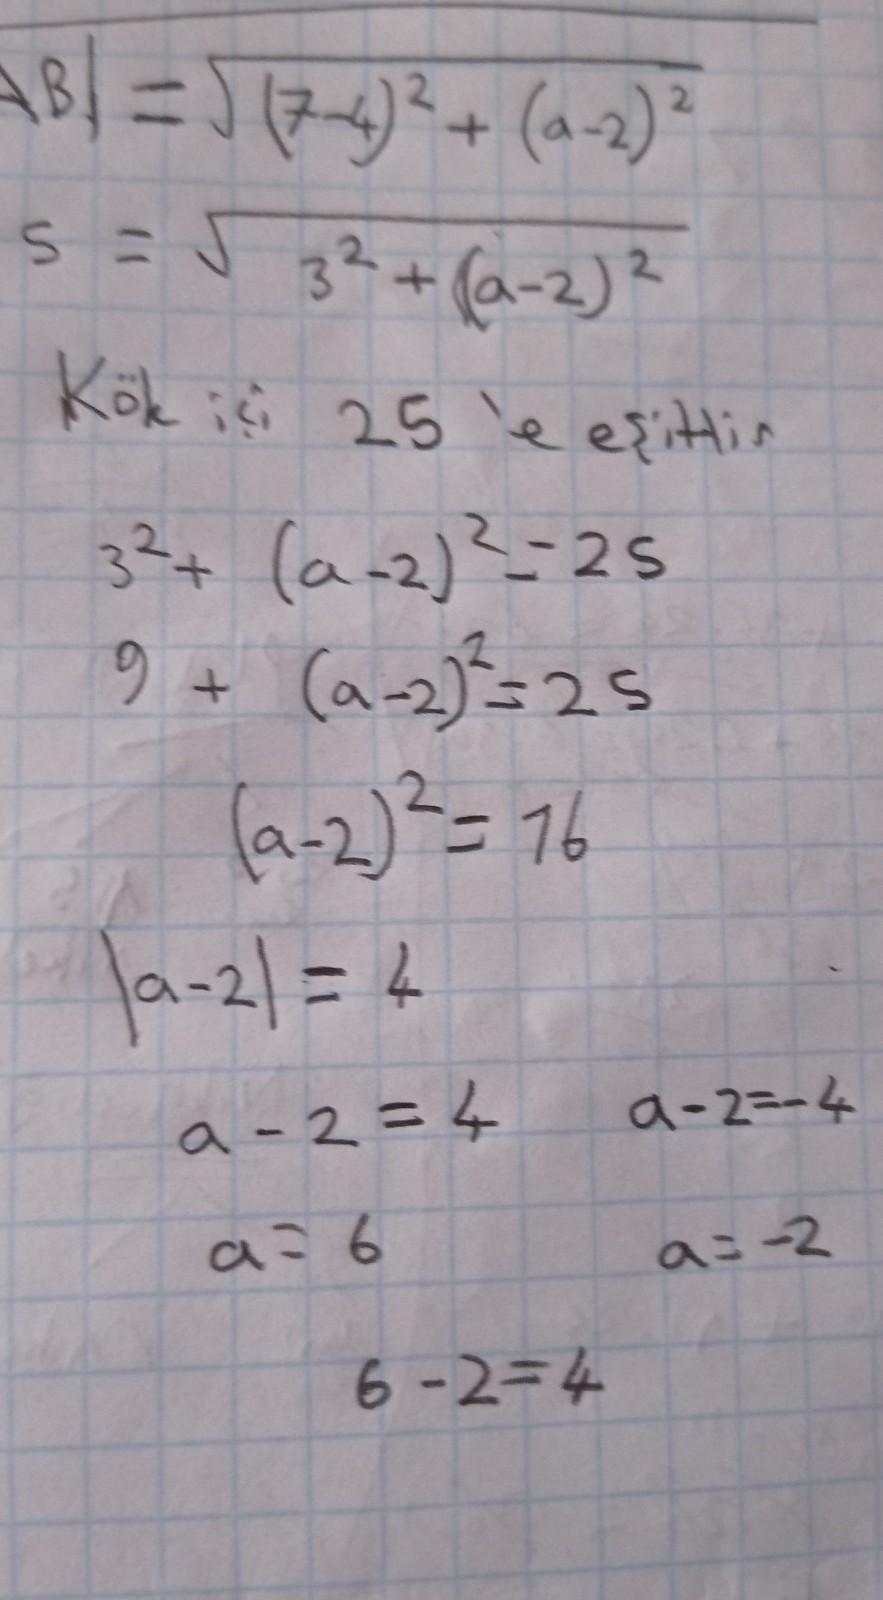 |AB| = √(7-4)² + (a-2)²
5 = √3² + (a-2)²
Kök içi 25'e eşittir
3² + (a-2)² = 25
9 + (a-2)² = 25
(a-2)² = 16
|a-2| = 4
a-2 = 4 a-2=-4
a = 6 a=-2
6-2=4